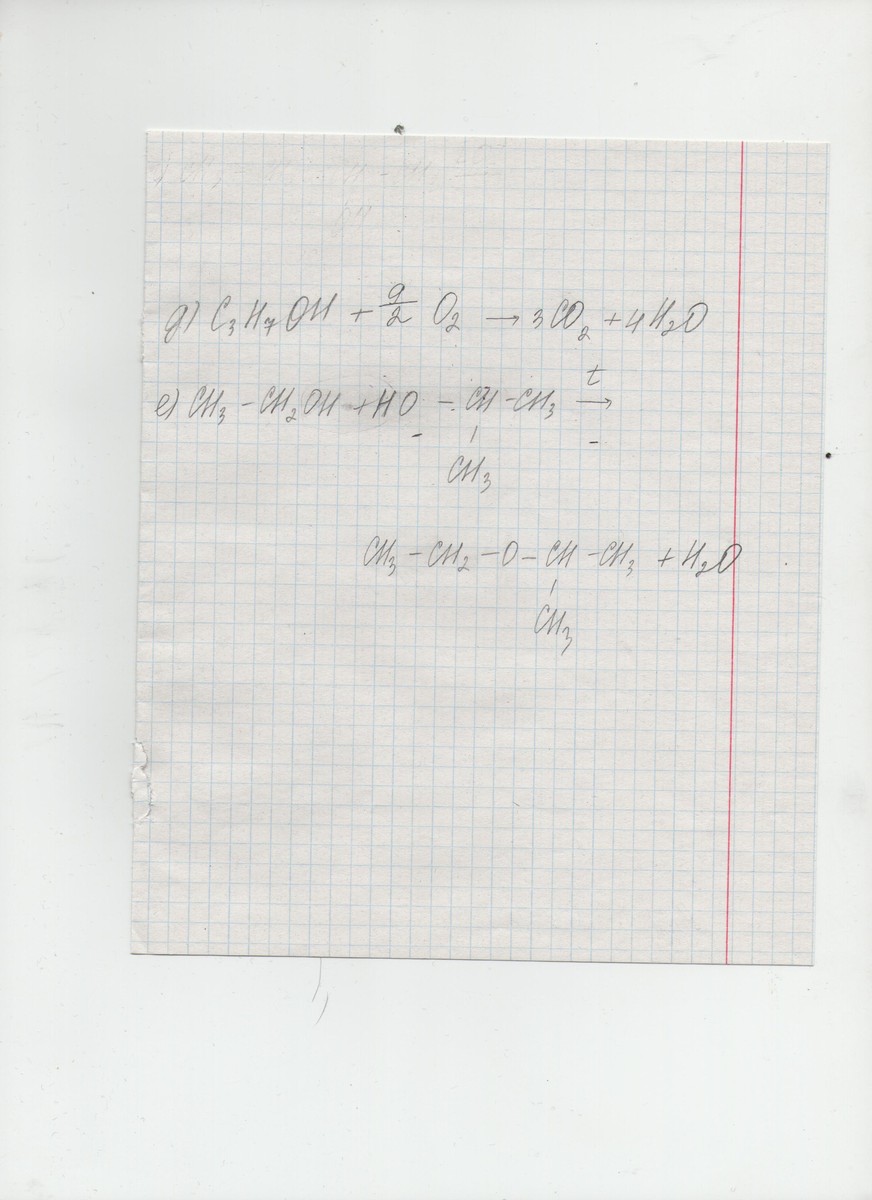 д) C₃H₇OH + 9/2 O₂ → 3CO₂ + 4H₂O
е) CH₃ - CH₂OH + HO - CH - CH₃ t→
CH₃
CH₃ - CH₂ - O - CH - CH₃ + H₂O
CH₃